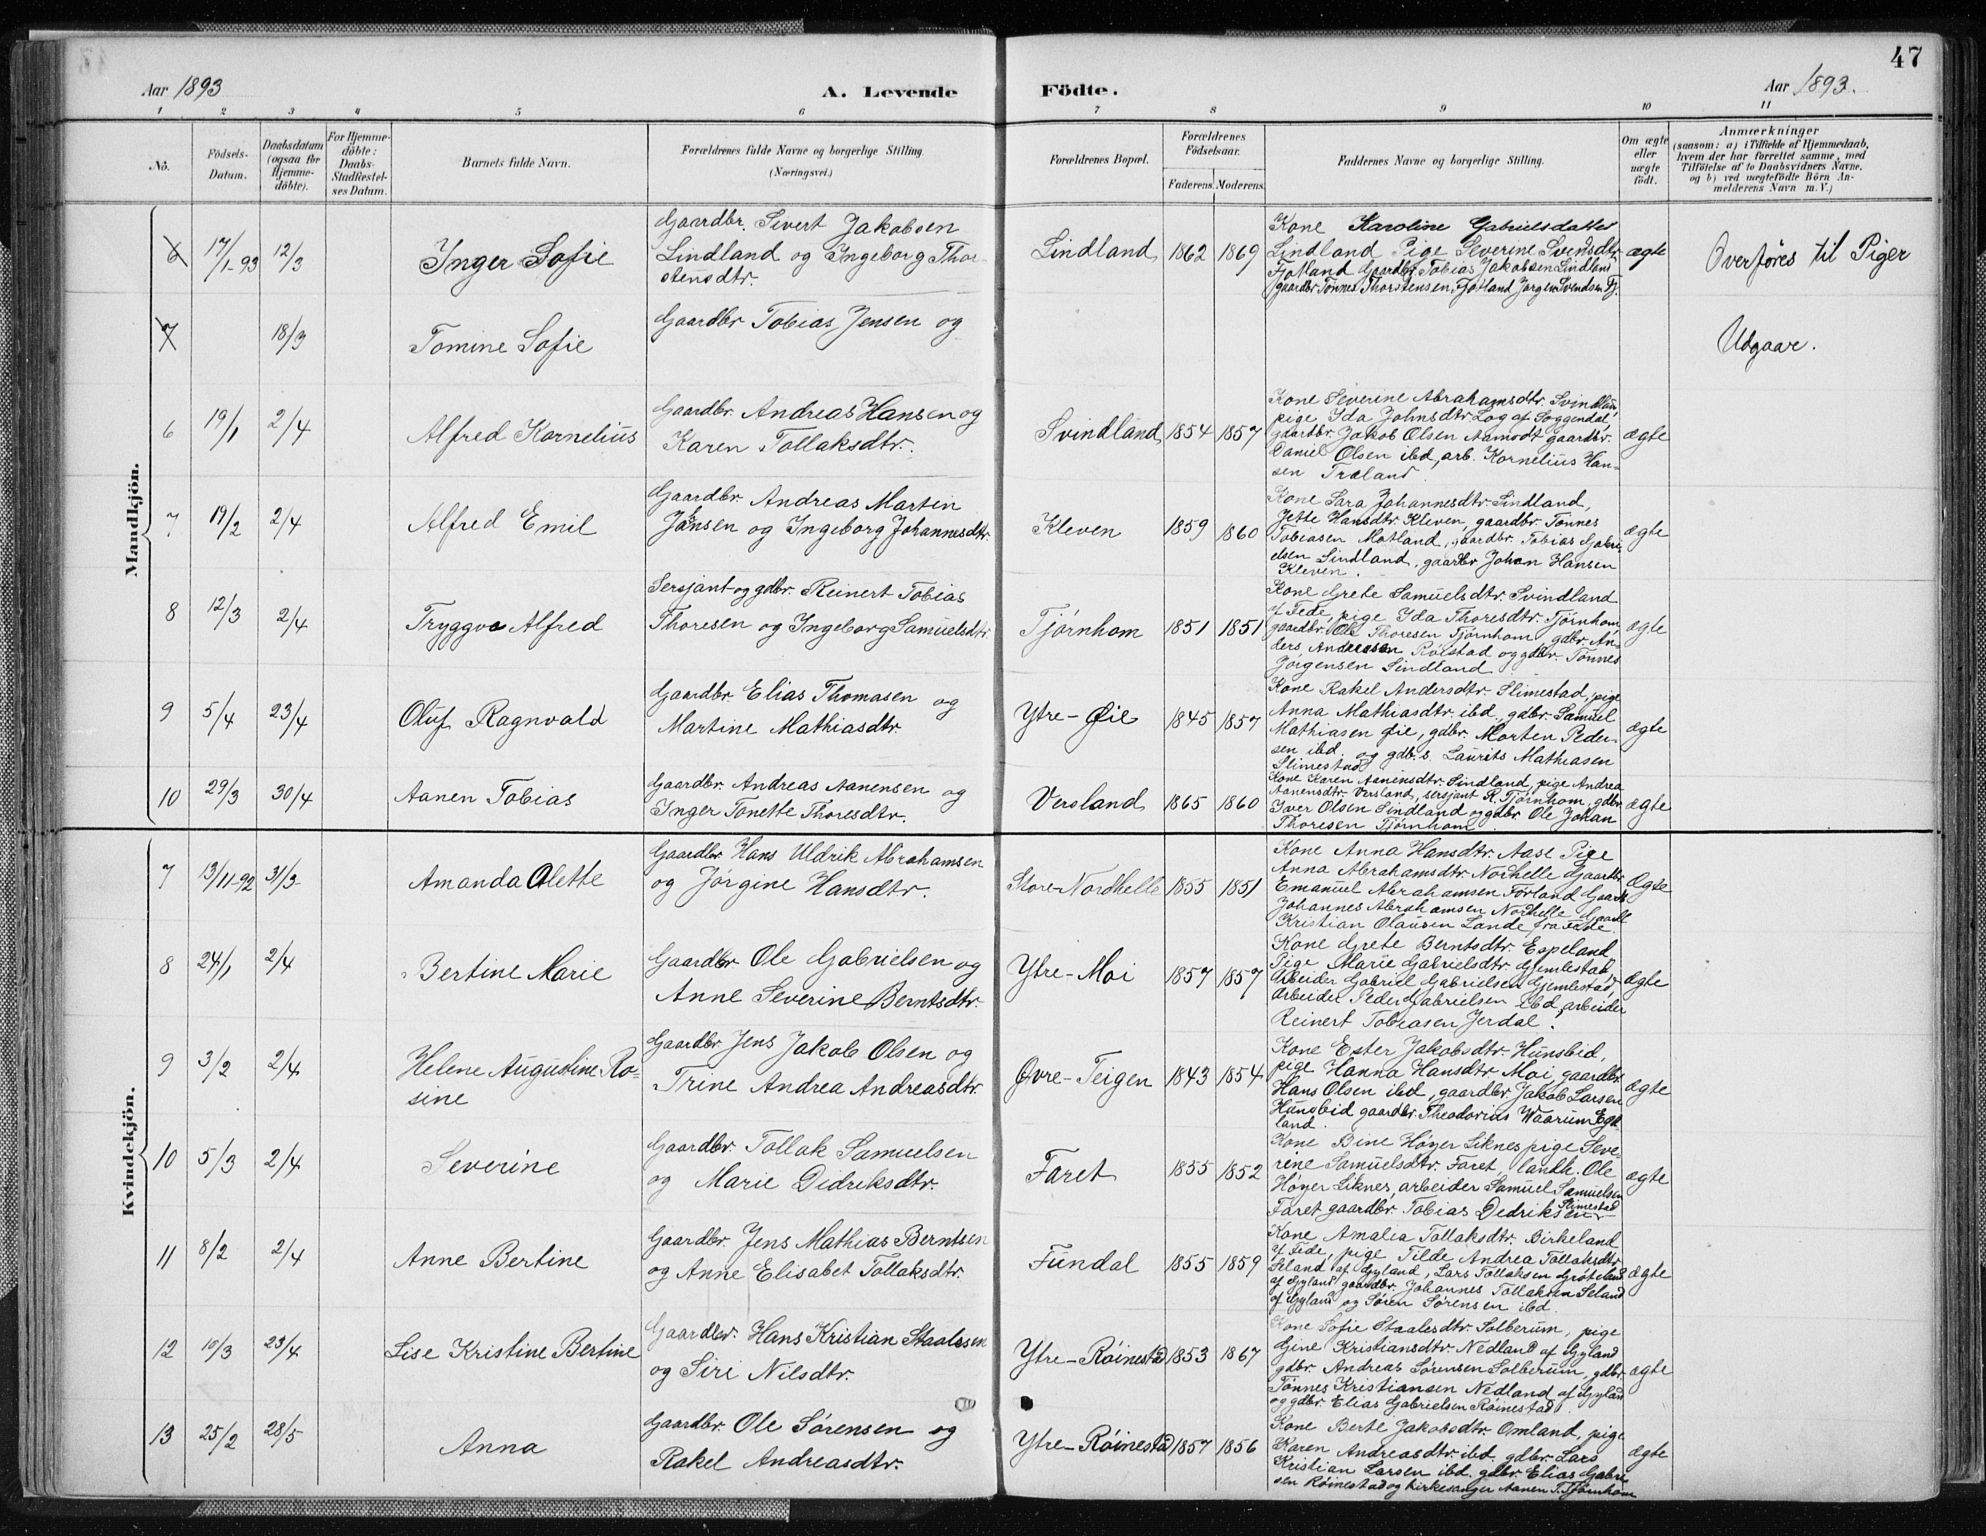 47
Aar 1893
A. Levende Födte.
Aar 1893.
1 2 3 4 5 6 7 8 9 10 11
No.
Födsels-Datum.
Daabsdatum (ogsaa for Hjemme-döbte).
For Hjemme-döbte: Daabs-Stadfæstel-ses Datum.
Barnets fulde Navn.
Forældrenes fulde Navne og borgerlige Stilling. (Næringsvei.)
Forældrenes Bopæl.
Forældrenes Födselsaar.
Faderens. Moderens.
Faddernes Navne og borgerlige Stilling.
Om ægte eller uægte födt.
Anmærkninger
(saasom: a) i Tilfælde af Hjemmedaab, hvem der har forrettet samme, med Tilföielse af to Daabsvidners Navne, og b) ved uægtefödte Börn An-melderens Navn m. V.)
Mandkjön.
6 17/1-93 12/3 Inger Sofie
Gaardbr. Sivert Jakobsen
Lindland og Ingeborg Thor-
stensdtr.
Lindland 1862 1869
Kone Karoline Gabrielsdatter
Lindland Pige Severine Svendsdtr.
Fjotland Gaardbr Tobias Jakobsen Lindland
gaardbr. Tønnes Thorstensen, Fjotland Jørgen Svendsen Fj.
ægte
Overføres til Piger
7 18/3 Tomine Sofie
Gaardbr Tobias Jensen og
Udgaar.
6 19/1 2/4 Alfred Kornelius
Gaardbr. Andreas Hansen og
Karen Tollaksdtr.
Svindland 1854 1857
Kone Severine Abrahamsdtr. Svindland,
pige Ida Johnsdtr. Log af Soggendal,
gaardbr. Jakob Olsen Aamodt gaardbr.
Daniel Olsen ibd, arb. Kornelius Han-
sen Træland
ægte
7 19/2 2/4 Alfred Emil
Gaardbr. Andreas Martin
Jansen og Ingeborg Johannesdtr.
Kleven 1859 1860
Kone Sara Johannesdtr. Lindland,
Jette Hansdtr. Kleven, gaardbr. Tønnes
Tobiasen Motland, gaardbr. Tobias Gabri-
elsen Lindland, gaardbr Johan Hansen
Kleven.
ægte
8 12/3 2/4 Tryggve Alfred
Sersjant og gdbr. Reinert Tobias
Thoresen og Ingeborg Samuelsdtr.
Tjørnhom 1851 1851
Kone Grete Samuelsdtr. Svindland
af Fede, pige Ida Thoresdtr. Tjørnhom
gaardbr. Ole Thoresen Tjørnhom, gdbr. An-
ders Andreasen Rølstad og gdbr. Tønnes
Jørgensen Lindland.
ægte
9 5/4 23/4 Oluf Ragnvald
Gaardbr. Elias Thomasen og
Martine Mathiasdtr.
Ytre-Øie 1845 1857
Kone Rakel Andersdtr. Slimestad, pige
Anna Mathiasdtr. ibd., gdbr. Samuel
Mathiasen Øie, gdbr. Morten Peder-
sen ibd. og gdb.s. Laurits Mathiasen
Slimestad
ægte
10 29/3 30/4 Aanen Tobias
Gaardbr. Andreas Aanensen og
Inger Tonette Thoresdtr.
Versland 1865 1860
Kone Karen Aanensdtr. Lindland, pige Andrea
Aanensdtr. Versland, sersjant R. Tjørnhom, gdbr.
Iver Olsen Lindland og gdbr. Ole Johan
Thoresen Tjørnhom.
ægte
Kvindekjön.
7 13/11-92 31/3 Amanda Olette
Gaardbr Hans Uldrik Abrahamsen
og Jørgine Hansdtr.
Store-Nordhelle 1855 1851
Kone Anna Hansdtr. Aase Pige
Anna Abrahamsdtr. Norhelle Gaardbr
Emanuel Abrahamsen Förland Gaardb
Johannes Abrahamsen Nordhelle Gaardb
Kristian Olausen Lande fra Fede.
Ægte
8 24/1 2/4 Bertine Marie
Gaardbr Ole Gabrielsen og
Anne Severine Berntsdtr.
Ytre-Moi 1857 1857
Kone Grete Berntsdtr. Espeland,
Pige Marie Gabrielsdtr. Gjemlestad,
Arbeider Gabriel Gabrielsen Gjemlestad,
Arbeider Peder Gabrielsen ibd, arbeider
Reinert Tobiasen Jerdal.
ægte
9 3/2 2/4 Helene Augustine Ro-
sine
Gaardbr Jens Jakob Olsen og
Trine Andrea Andreasdtr.
Øvre-Teigen 1843 1854
Kone Ester Jakobsdtr. Hunsbid,
pige Hanna Hansdtr Moi, gaardbr.
Hans Olsen ibd, gaardbr Jakob Larsen
Hunsbid gaardbr. Theodorius Waarum Egh
land.
ægte
10 5/3 2/4 Severine
Gaardbr. Tollak Samuelsen
og Marie Didriksdtr.
Faret 1855 1852
Kone Bine Høyer Liknes, pige Seve-
rine Samuelsdtr. Faret, landh. Ole
Høyer Liknes, arbeider Samuel Samuelsen
Faret gaardbr. Tobias Dedriksen Slimestad
ægte
11 8/2 2/4 Anne Bertine
Gaardbr. Jens Mathias Berntsen
og Anne Elisabet Tollaksdtr.
Fundal 1855 1859
Kone Amalia Tollaksdtr. Birkeland
af Fede, pige Tilde Andrea Tollaksdtr
Seland af Gyland, Lars Tollaksen Grøteland
af Gyland gaardbr. Johannes Tollaksen Seland
af Gyland og Søren Sørensen ibd.
ægte
12 10/3 23/4 Lise Kristine Bertine
Gaardbr. Hans Kristian Staalesen
og Siri Nilsdtr.
Ytre-Røinestad 1853 1867
Kone Sofie Staalesdtr. Solberum, pige
Gine Kristiansdtr. Nedland af Gyland
gdbr. Andreas Sørensen Solberum, gdbr.
Tønnes Kristiansen Nedland af Gyland
og gdbr. Elias Gabrielsen Røinestad.
ægte
13 25/2 28/5 Anna
Gaardbr. Ole Sørensen og
Rakel Andreasdtr.
Ytre-Røinestad 1857 1856
Kone Berte Jakobsdtr. Omland, pige
Karen Andreasdtr. ibd. gdbr. Lars
Kristian Larsen ibd. gdbr. Elias Gabri-
sen Røinestad og kirkesanger Aanen T. Tjørnhom
ægte